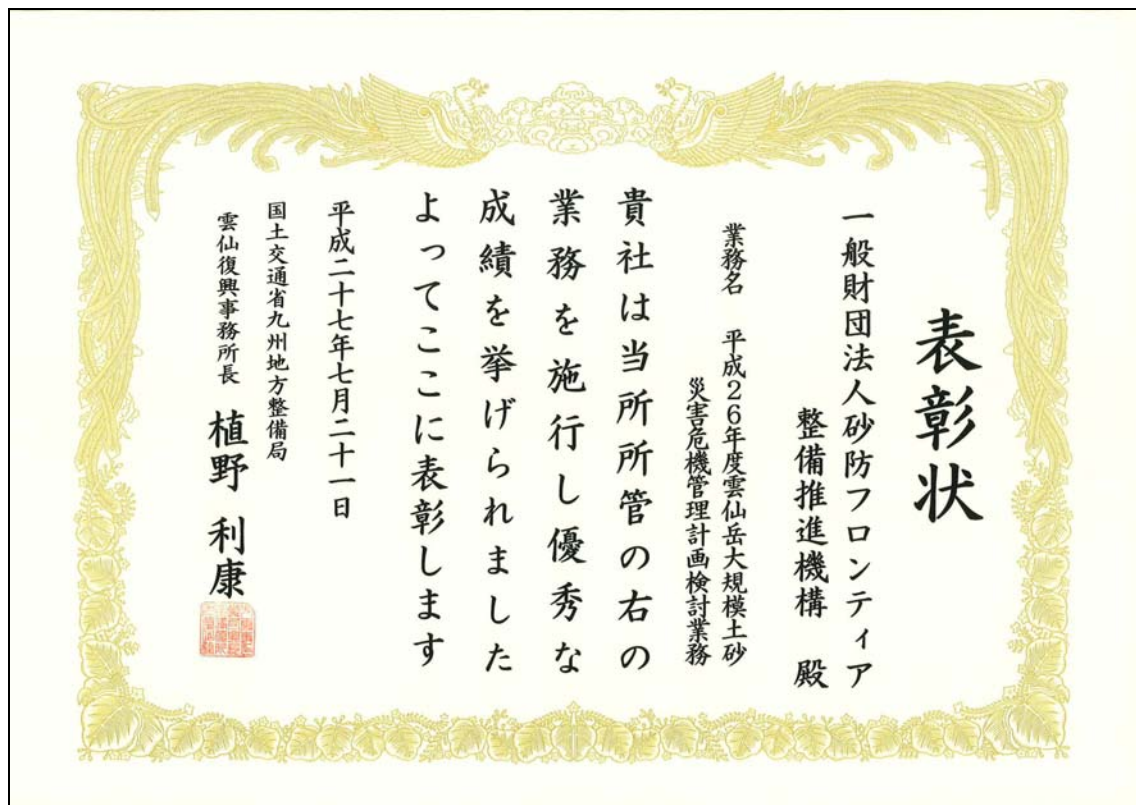 表彰状
一般財団法人砂防フロンティア
整備推進機構　殿
業務名　平成26年度雲仙岳大規模土砂
災害危機管理計画検討業務
貴社は当所所管の右の
業務を施行し優秀な
成績を挙げられました
よってここに表彰します
平成二十七年七月二十一日
国土交通省九州地方整備局
雲仙復興事務所長　植野　利康